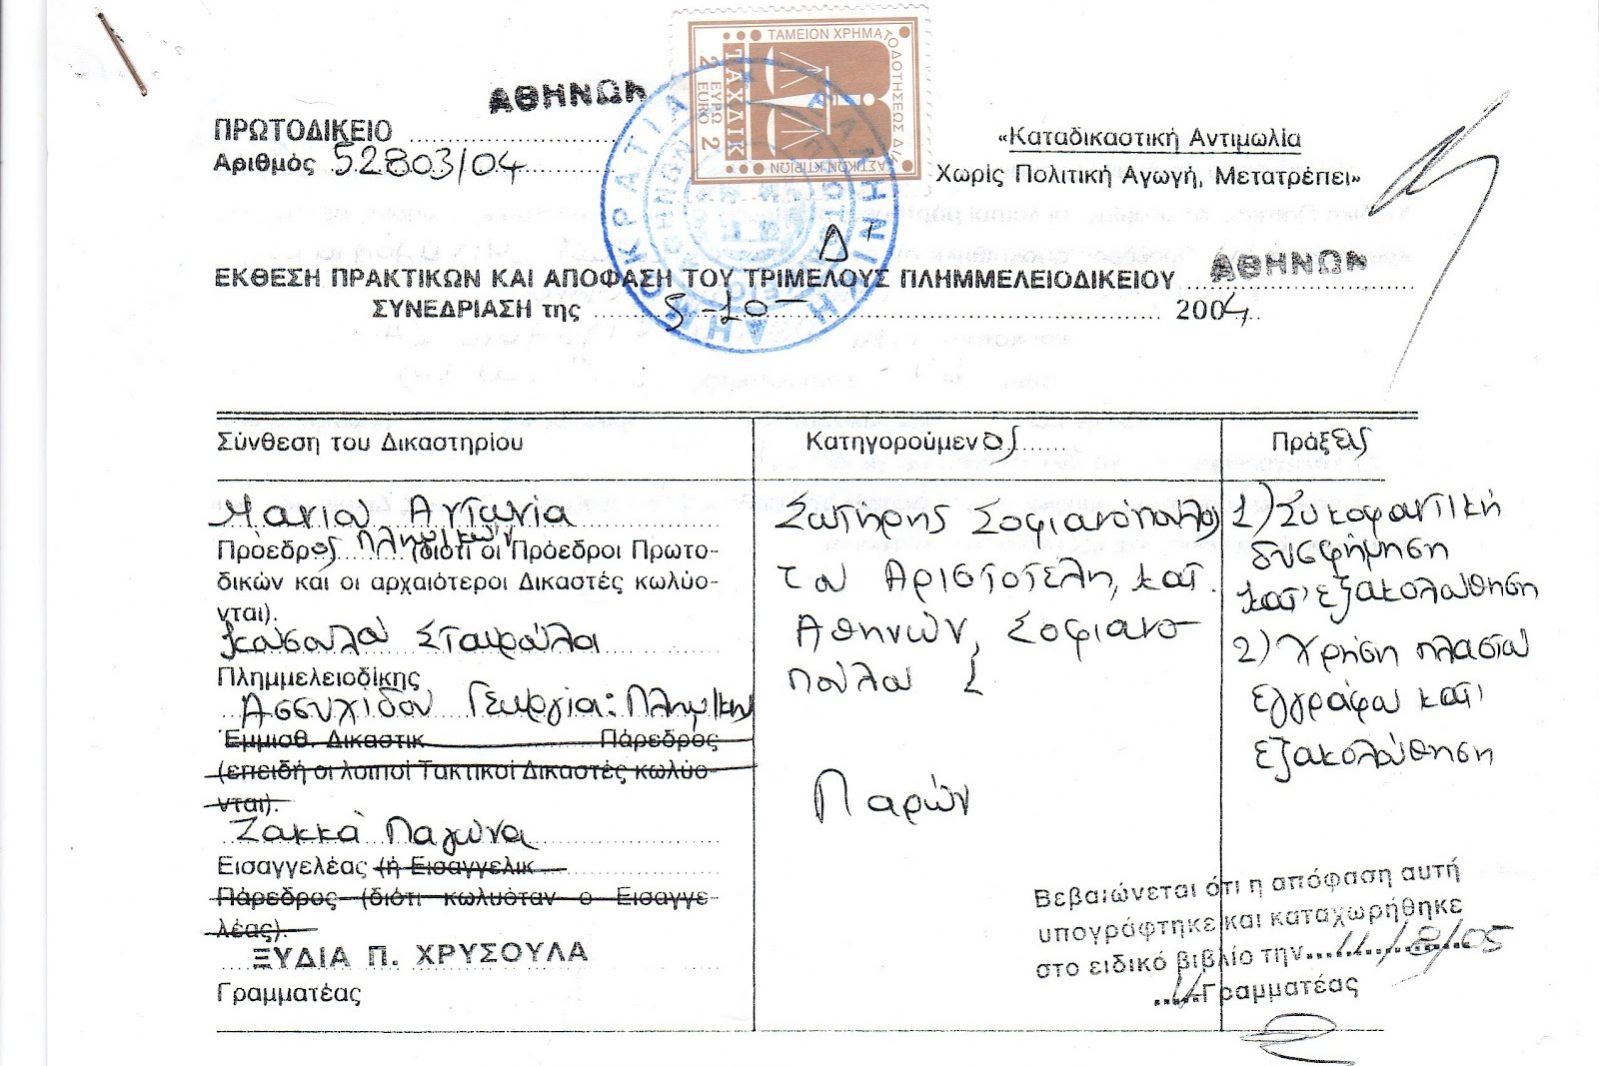 ΤΑΜΕΙΟΝ ΧΡΗΜΑΤΟΔΟΤΗΣΕΩΣ ΔΙΚΑΣΤΙΚΩΝ ΚΤΙΡΙΩΝ
ΤΑΧΔΙΚ
2 ΕΥΡΩ 2
EURO
ΕΛΛΗΝΙΚΗ ΔΗΜΟΚΡΑΤΙΑ
ΑΘΗΝΩΝ
ΠΡΩΤΟΔΙΚΕΙΟ
Αριθμός 52803/04
«Καταδικαστική Αντιμωλία
Χωρίς Πολιτική Αγωγή, Μετατρέπει»
Δ
ΕΚΘΕΣΗ ΠΡΑΚΤΙΚΩΝ ΚΑΙ ΑΠΟΦΑΣΗ ΤΟΥ ΤΡΙΜΕΛΟΥΣ ΠΛΗΜΜΕΛΕΙΟΔΙΚΕΙΟΥ ΑΘΗΝΩΝ
ΣΥΝΕΔΡΙΑΣΗ της 5-10- 2004
Σύνθεση του Δικαστηρίου
Μανιου Αντωνία
Πρόεδρος Πλημ/κών (διότι οι Πρόεδροι Πρωτο-
δικών και οι αρχαιότεροι Δικαστές κωλύο-
νται).
Σταυρούλα
Πλημμελειοδίκης
Ασσυχίδου Γεωργία: Πλημ/κης
Εμμισθ. Δικαστικ Πάρεδρος
(επειδή οι λοιποί Τακτικοί Δικαστές κωλύο-
νται).
Ζακκά Παγώνα
Εισαγγελέας (ή Εισαγγελικ
Πάρεδρος (διότι κωλυόταν ο Εισαγγε-
λέας).
ΞΥΔΙΑ Π. ΧΡΥΣΟΥΛΑ
Γραμματέας
Κατηγορούμενος
Σωτήρης Σοφιανόπουλος
του Αριστοτέλη, κατ.
Αθηνών, Σοφιανο-
πούλου 1
Παρών
Πράξεις
1) Συκοφαντική
δυσφήμηση
κατ' εξακολούθηση
2) Χρήση πλαστού
εγγράφου κατ'
εξακολούθηση
Βεβαιώνεται ότι η απόφαση αυτή
υπογράφτηκε και καταχωρήθηκε
στο ειδικό βιβλίο την 11/8/05
Η Γραμματέας